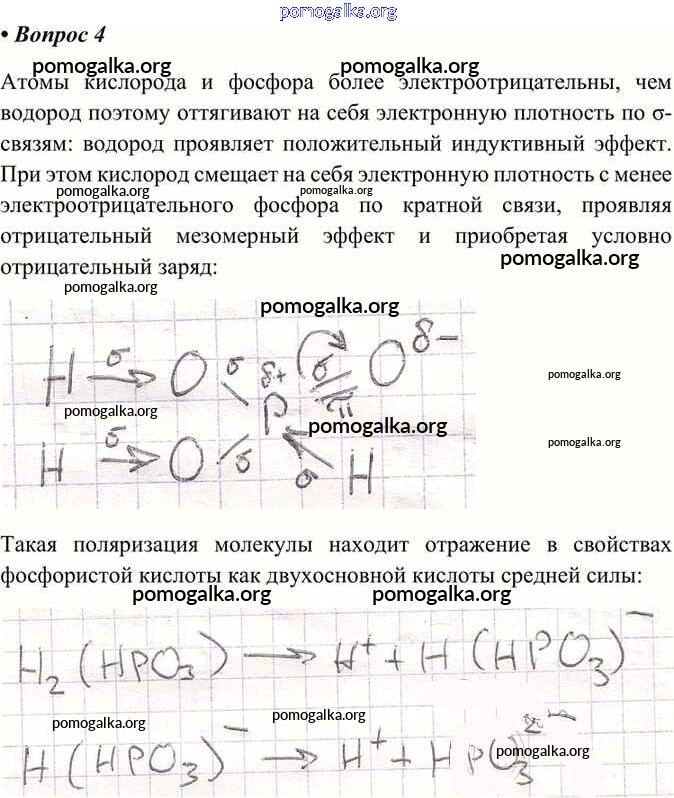 pomogalka.org
• Вопрос 4
pomogalka.org pomogalka.org
Атомы кислорода и фосфора более электроотрицательны, чем
водород поэтому оттягивают на себя электронную плотность по σ-
связям: водород проявляет положительный индуктивный эффект.
При этом кислород смещает на себя электронную плотность с менее
pomogalka.org pomogalka.org
электроотрицательного фосфора по кратной связи, проявляя
отрицательный мезомерный эффект и приобретая условно
pomogalka.org
отрицательный заряд:
pomogalka.org
pomogalka.org
H σ→ O σ δ+ σ O δ−
pomogalka.org
P π
pomogalka.org
pomogalka.org
pomogalka.org
H σ→ O σ σ H
Такая поляризация молекулы находит отражение в свойствах
фосфористой кислоты как двухосновной кислоты средней силы:
pomogalka.org pomogalka.org
H₂(HPO₃) → H⁺ + H(HPO₃)⁻
pomogalka.org pomogalka.org
H(HPO₃)⁻ → H⁺ + HPO₃²⁻
pomogalka.org